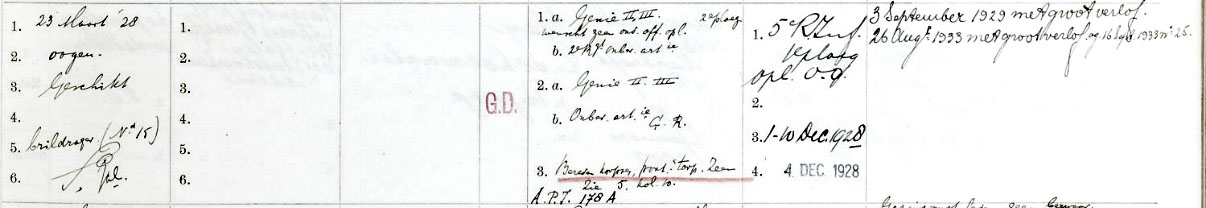 1. 23 Maart '28
2. oogen.
3. Geschikt
4.
5. brildrager (Nº 15)
6.
1.
2.
3.
4.
5.
6.
G.D.
1. a. Genie II III. 2e ploeg
wenscht geen ond. off. opl.
b. 2e Rgt onber. art ie
2. a. Genie II. III
b. Onber. art. ie G. R.
3. Bereden korpsen, pont. torp. Zeem
Zie 5. kol. 10.
A.P.T. 178 A
1. 5e R. Inf.
1e ploeg
opl. o.g.
2.
3. 1-10 Dec. 1928
4. 4 DEC. 1928
3 September 1929 met groot verlof.
26 Aug. 1933 met groot verlof op 16 Sept 1933 nº 25.